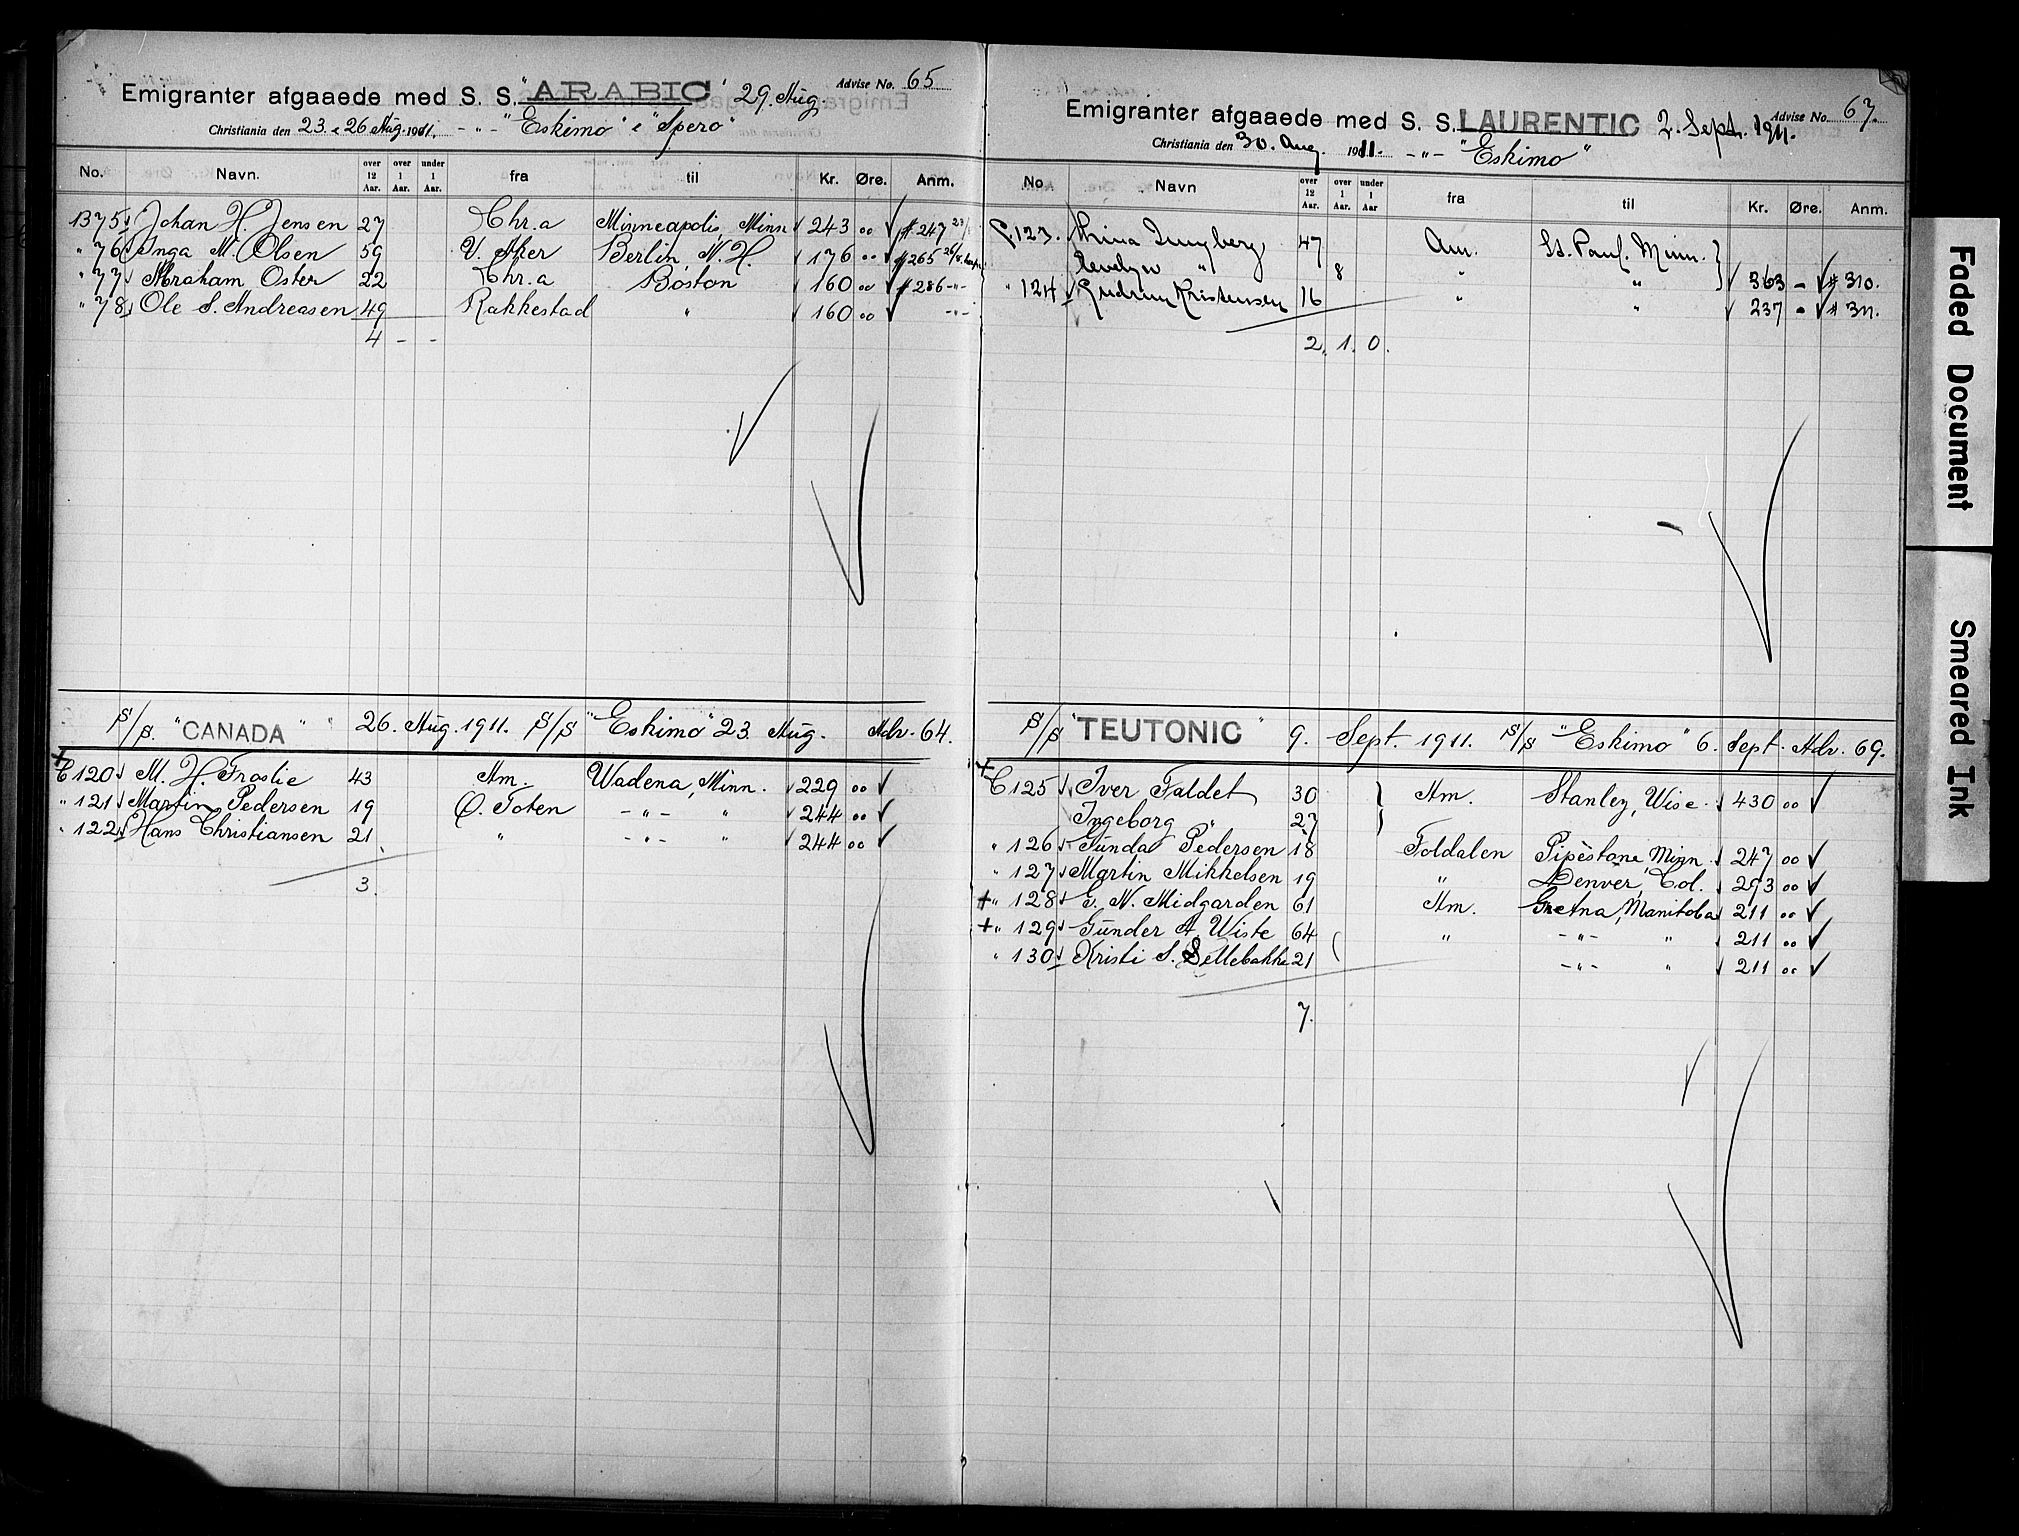 Advise No. 65
Emigranter afgaaede med S. S. "ARABIC" 29. Aug.
Christiania den 23. & 26 Aug. 1911. -"- "Eskimo" & "Spero"
No. Navn. over 12 Aar. over 1 Aar. under 1 Aar. fra til Kr. Øre. Anm.
1375 Johan H. Jensen 27 Chr.a Minneapolis, Minn 243 00 # 247 23/8
" 76 Inga M. Olsen 59 V. Aker Berlin, N. H. 176 00 # 265
" 77 Abraham Oster 22 Chr.a Boston 160 00 # 286 -"-
" 78 Ole S. Andreasen 49 Rakkestad " 160 00 -"-
4 - -
S/S. "CANADA" 26. Aug. 1911. S/S "Eskimo" 23. Aug. Adv. 64.
C 120 M. H. Froslie 43 Am. Wadena, Minn. 229 00
" 121 Martin Pedersen 19 O. Toten -"- " 244 00
" 122 Hans Christiansen 21 " -"- " 244 00
3.
Advise No. 67.
Emigranter afgaaede med S. S. LAURENTIC 2. Sept. 1911.
Christiania den 30. Aug. 1911. -"- "Eskimo"
No. Navn over 12 Aar. over 1 Aar. under 1 Aar fra til Kr. Øre. Anm.
C. 123. Ljungberg 47 Am. St. Paul. Minn.
Evelyn " 8 " " 363 - # 310.
" 124 Gudrun Kristensen 16 " " 237 - # 311.
2. 1. 0.
S/S "TEUTONIC" 9. Sept. 1911. S/S "Eskimo" 6. Sept. Adv. 69.
C 125 Iver Faldet 30 Am. Stanley, Wisc. 430 00
Ingeborg " 27
" 126 Gunda Pedersen 18 Foldalen Pipestone Minn 247 00
" 127 Martin Mikkelsen 19 " Denver, Col. 293 00
+ " 128 G. N. Midgarden 61 Am. Gretna, Manitoba 211 00
+ " 129 Gunder A. Wiste 64 " -"- " 211 00
" 130 Kristi S. Sellebakke 21 -"- " 211 00
7.
Faded Document
Smeared Ink